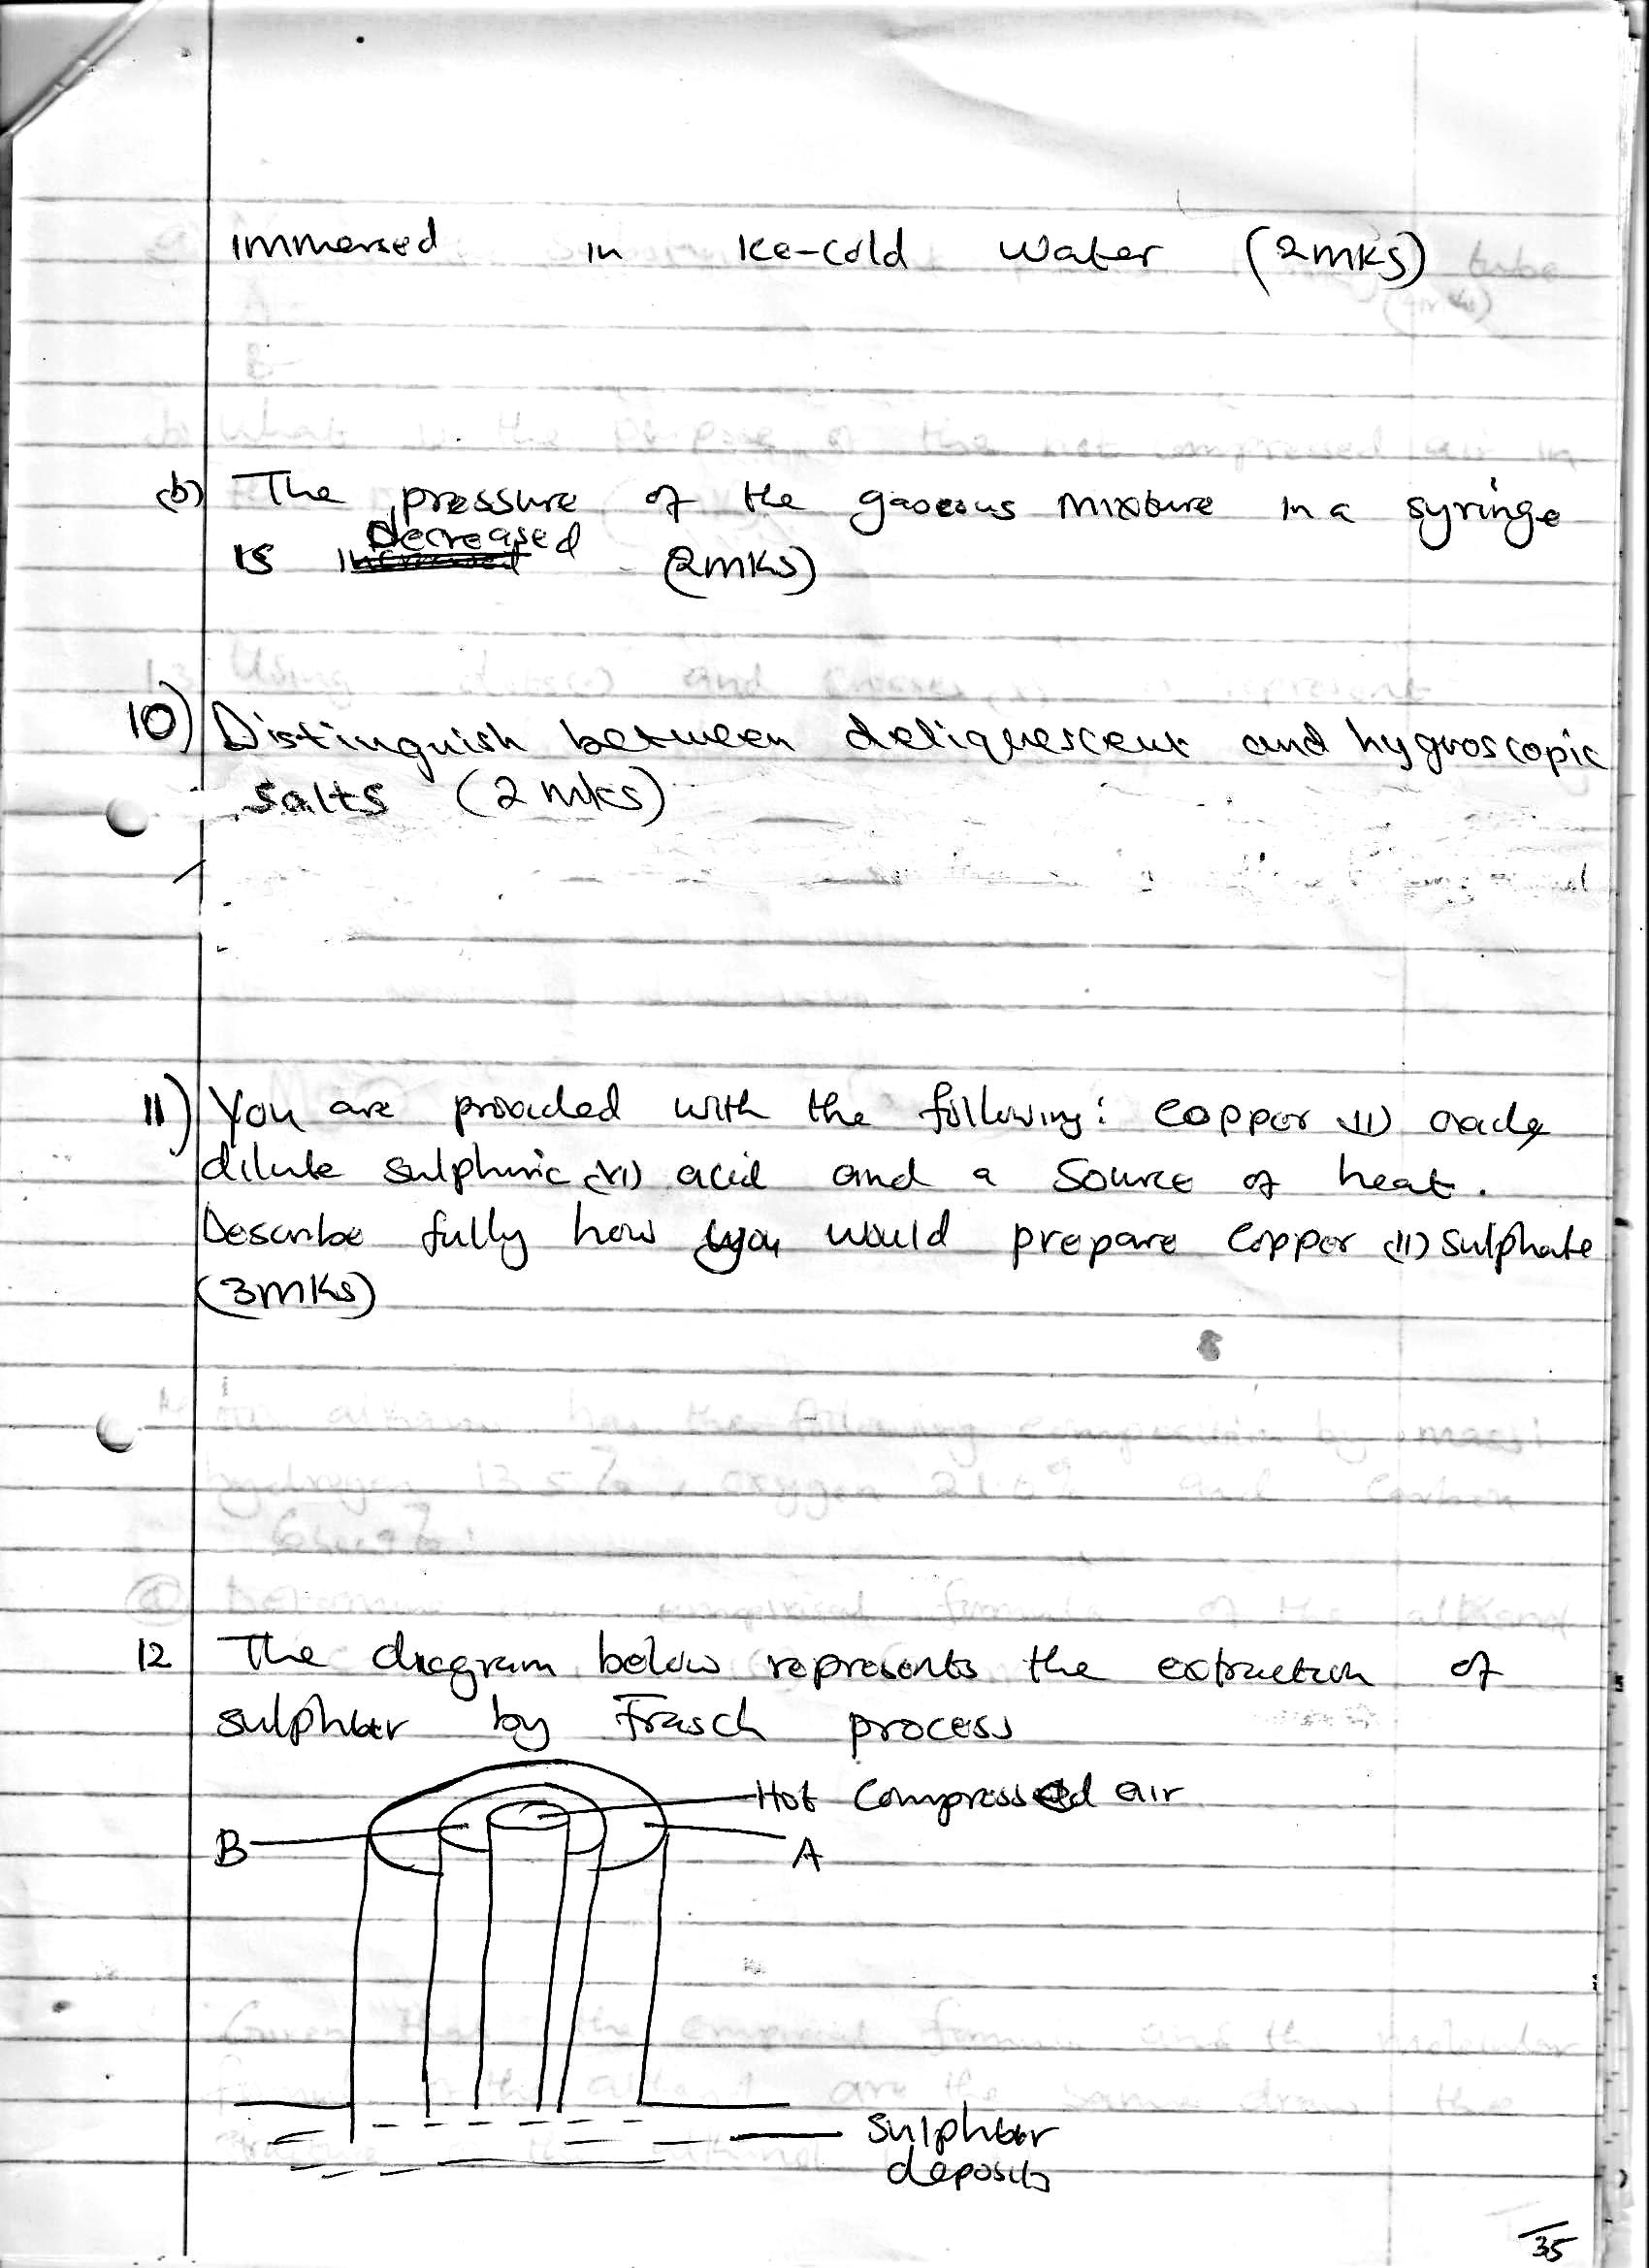 immersed in Ice-cold water (2mks)
(b) The pressure of the gaseous mixture in a syringe
decreased
is (2mks)
10) Distinguish between deliquescent and hygroscopic
salts (2 mks)
11) You are provided with the following: Copper (II) oxide
dilute sulphuric (VI) acid and a source of heat.
Describe fully how you would prepare Copper (II) sulphate
(3mks)
12 The diagram below represents the extraction of
sulphur by Frasch process
Hot Compressed air
B
A
Sulphur
deposits
35